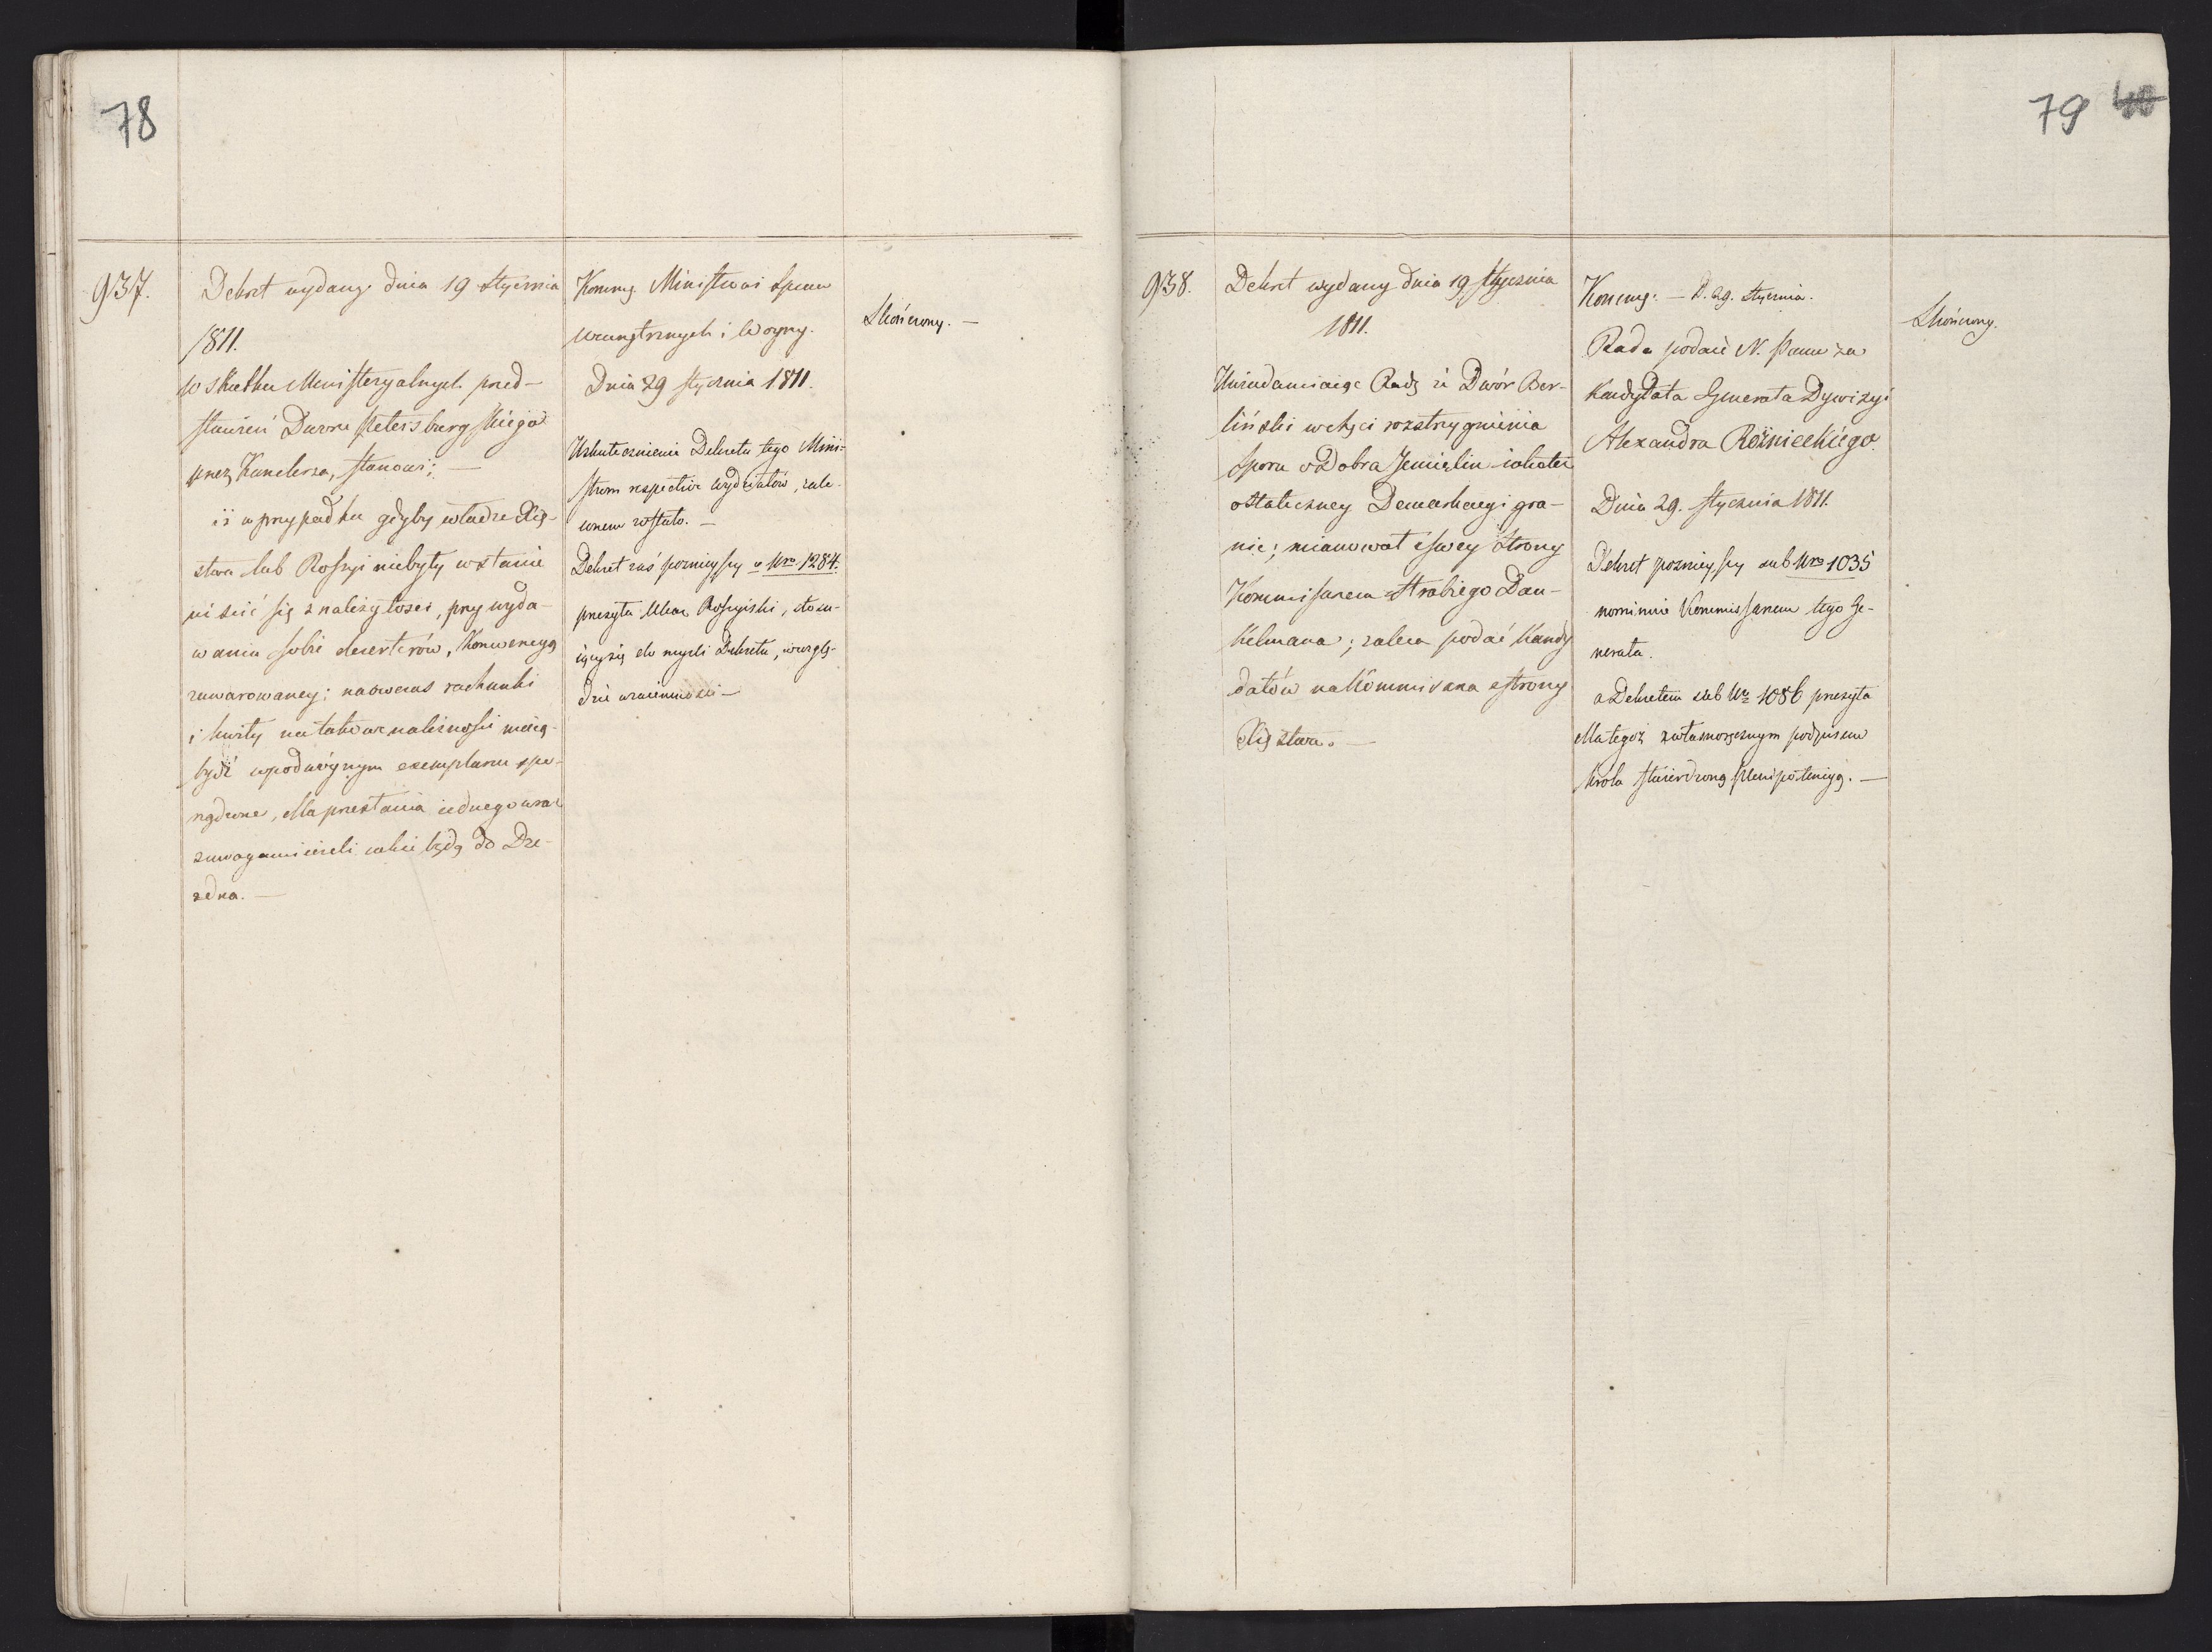 78
937.
Dekret wydany dnia 19 stycznia
1811.
w skutku Ministeryalnych przed-
stawień Dworu Petersburgskiego
przez Kanclerza, stanowi; —
iż w przypadku gdyby władze Xię-
stwa lub Rossyi niebyły wstanie
uiścić się z należytości, przy wyda-
waniu sobie deserterów, Konwencyą
zawarowaney; naówczas rachunki
i kwity na takowe należności maią
bydź wpodwóynym exemplarzu spo-
rządzone, dla przesłania iednego wraz
zuwagami ieżeli iakie będą do Dre-
zdna. —
Kommy Ministrowi Spraw
wewnętrznych i Woyny.
Dnia 29 stycznia 1811.
Uskutecznienie Dekretu tego Mini-
strom respective wydziałów, zale-
cone zostało. —
Dekret zaś poznieyszy Nro 1284.
przesyła Ukaz Rossyiski, stosu-
iący się do myśli Dekretu, wwzglę-
dzie wzaiemności —
Skończony. —
79
938.
Dekret wydany dnia 19 stycznia
1811.
Uwiadamiaiąc Radę iż Dwór Ber-
liński wchęci rozstrzygnienia
sporu o Dobra Jemielin iakoteż
ostateczney Demarkacyi gra-
nic; mianował z swey strony
Kommissarzem Hrabiego Dan-
kelmana; zaleca podać Kandy
datów na Kommissarza z strony
Xięstwa. —
Kommy: — D. 29. stycznia.
Rada podaie N. Panu za
Kandydata Generała Dywizyi
Alexandra Rożnieckiego.
Dnia 29. stycznia 1811.
Dekret poznieyszy sub Nro 1035
nominuie Kommissarzem tego Ge-
nerała.
a Dekretem sub Nr 1086 przesyła
dla tegoż zwłasnoręcznym podpisem
Króla stwierdzoną plenipotencyą. —
Skończony.